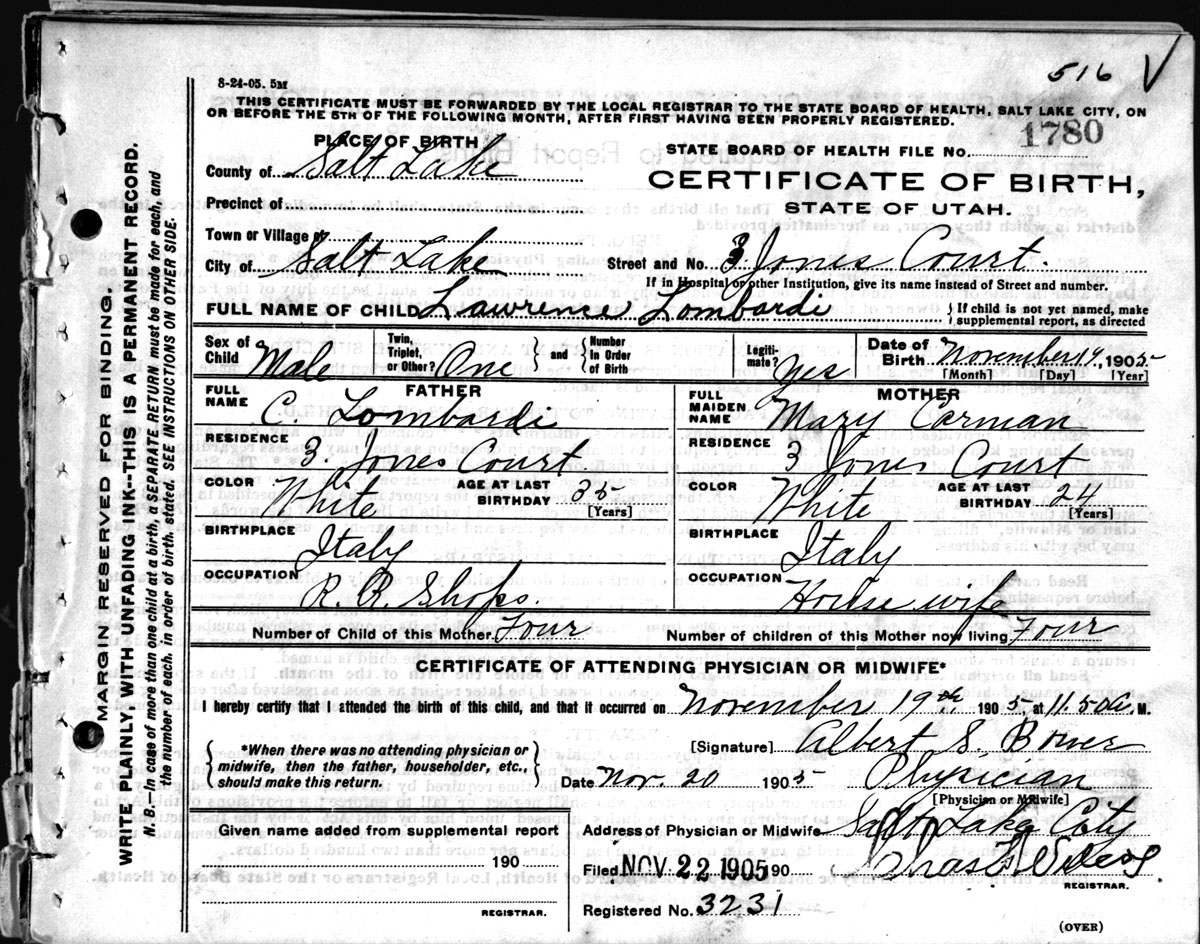 516 V
8-24-05. 5M
THIS CERTIFICATE MUST BE FORWARDED BY THE LOCAL REGISTRAR TO THE STATE BOARD OF HEALTH, SALT LAKE CITY, ON
OR BEFORE THE 5TH OF THE FOLLOWING MONTH, AFTER FIRST HAVING BEEN PROPERLY REGISTERED.
PLACE OF BIRTH
STATE BOARD OF HEALTH FILE No. 1780
County of Salt Lake
CERTIFICATE OF BIRTH,
Precinct of
STATE OF UTAH.
Town or Village of
City of Salt Lake Street and No. 3. Jones Court.
If in Hospital or other Institution, give its name instead of Street and number.
FULL NAME OF CHILD Lawrence Lombardi } If child is not yet named, make
supplemental report, as directed
Sex of Child Male Twin, Triplet, or Other? One } and { Number in Order of Birth Legiti-mate? Yes Date of Birth November 19, 1905
[Month] [Day] [Year]
FATHER MOTHER
FULL NAME C. Lombardi FULL MAIDEN NAME Mary Carman
RESIDENCE 3. Jones Court RESIDENCE 3 Jones Court
COLOR White AGE AT LAST BIRTHDAY 35 [Years] COLOR White AGE AT LAST BIRTHDAY 24 [Years]
BIRTHPLACE Italy BIRTHPLACE Italy
OCCUPATION R. R. Shops. OCCUPATION House wife
Number of Child of this Mother. Four Number of children of this Mother now living Four
CERTIFICATE OF ATTENDING PHYSICIAN OR MIDWIFE*
I hereby certify that I attended the birth of this child, and that it occurred on November 19th 1905, at 11.50 a. M.
{ *When there was no attending physician or
midwife, then the father, householder, etc.,
should make this return. }
[Signature] Albert S. Bower
Date Nov. 20 1905 Physician
[Physician or Midwife]
Given name added from supplemental report
Address of Physician or Midwife Salt Lake City
190
Filed NOV 22 1905 90 Chas
REGISTRAR. REGISTRAR.
Registered No. 3231
(OVER)
MARGIN RESERVED FOR BINDING.
WRITE PLAINLY, WITH UNFADING INK--THIS IS A PERMANENT RECORD.
N. B.—In case of more than one child at a birth, a SEPARATE RETURN must be made for each, and
the number of each, in order of birth, stated. SEE INSTRUCTIONS ON OTHER SIDE.